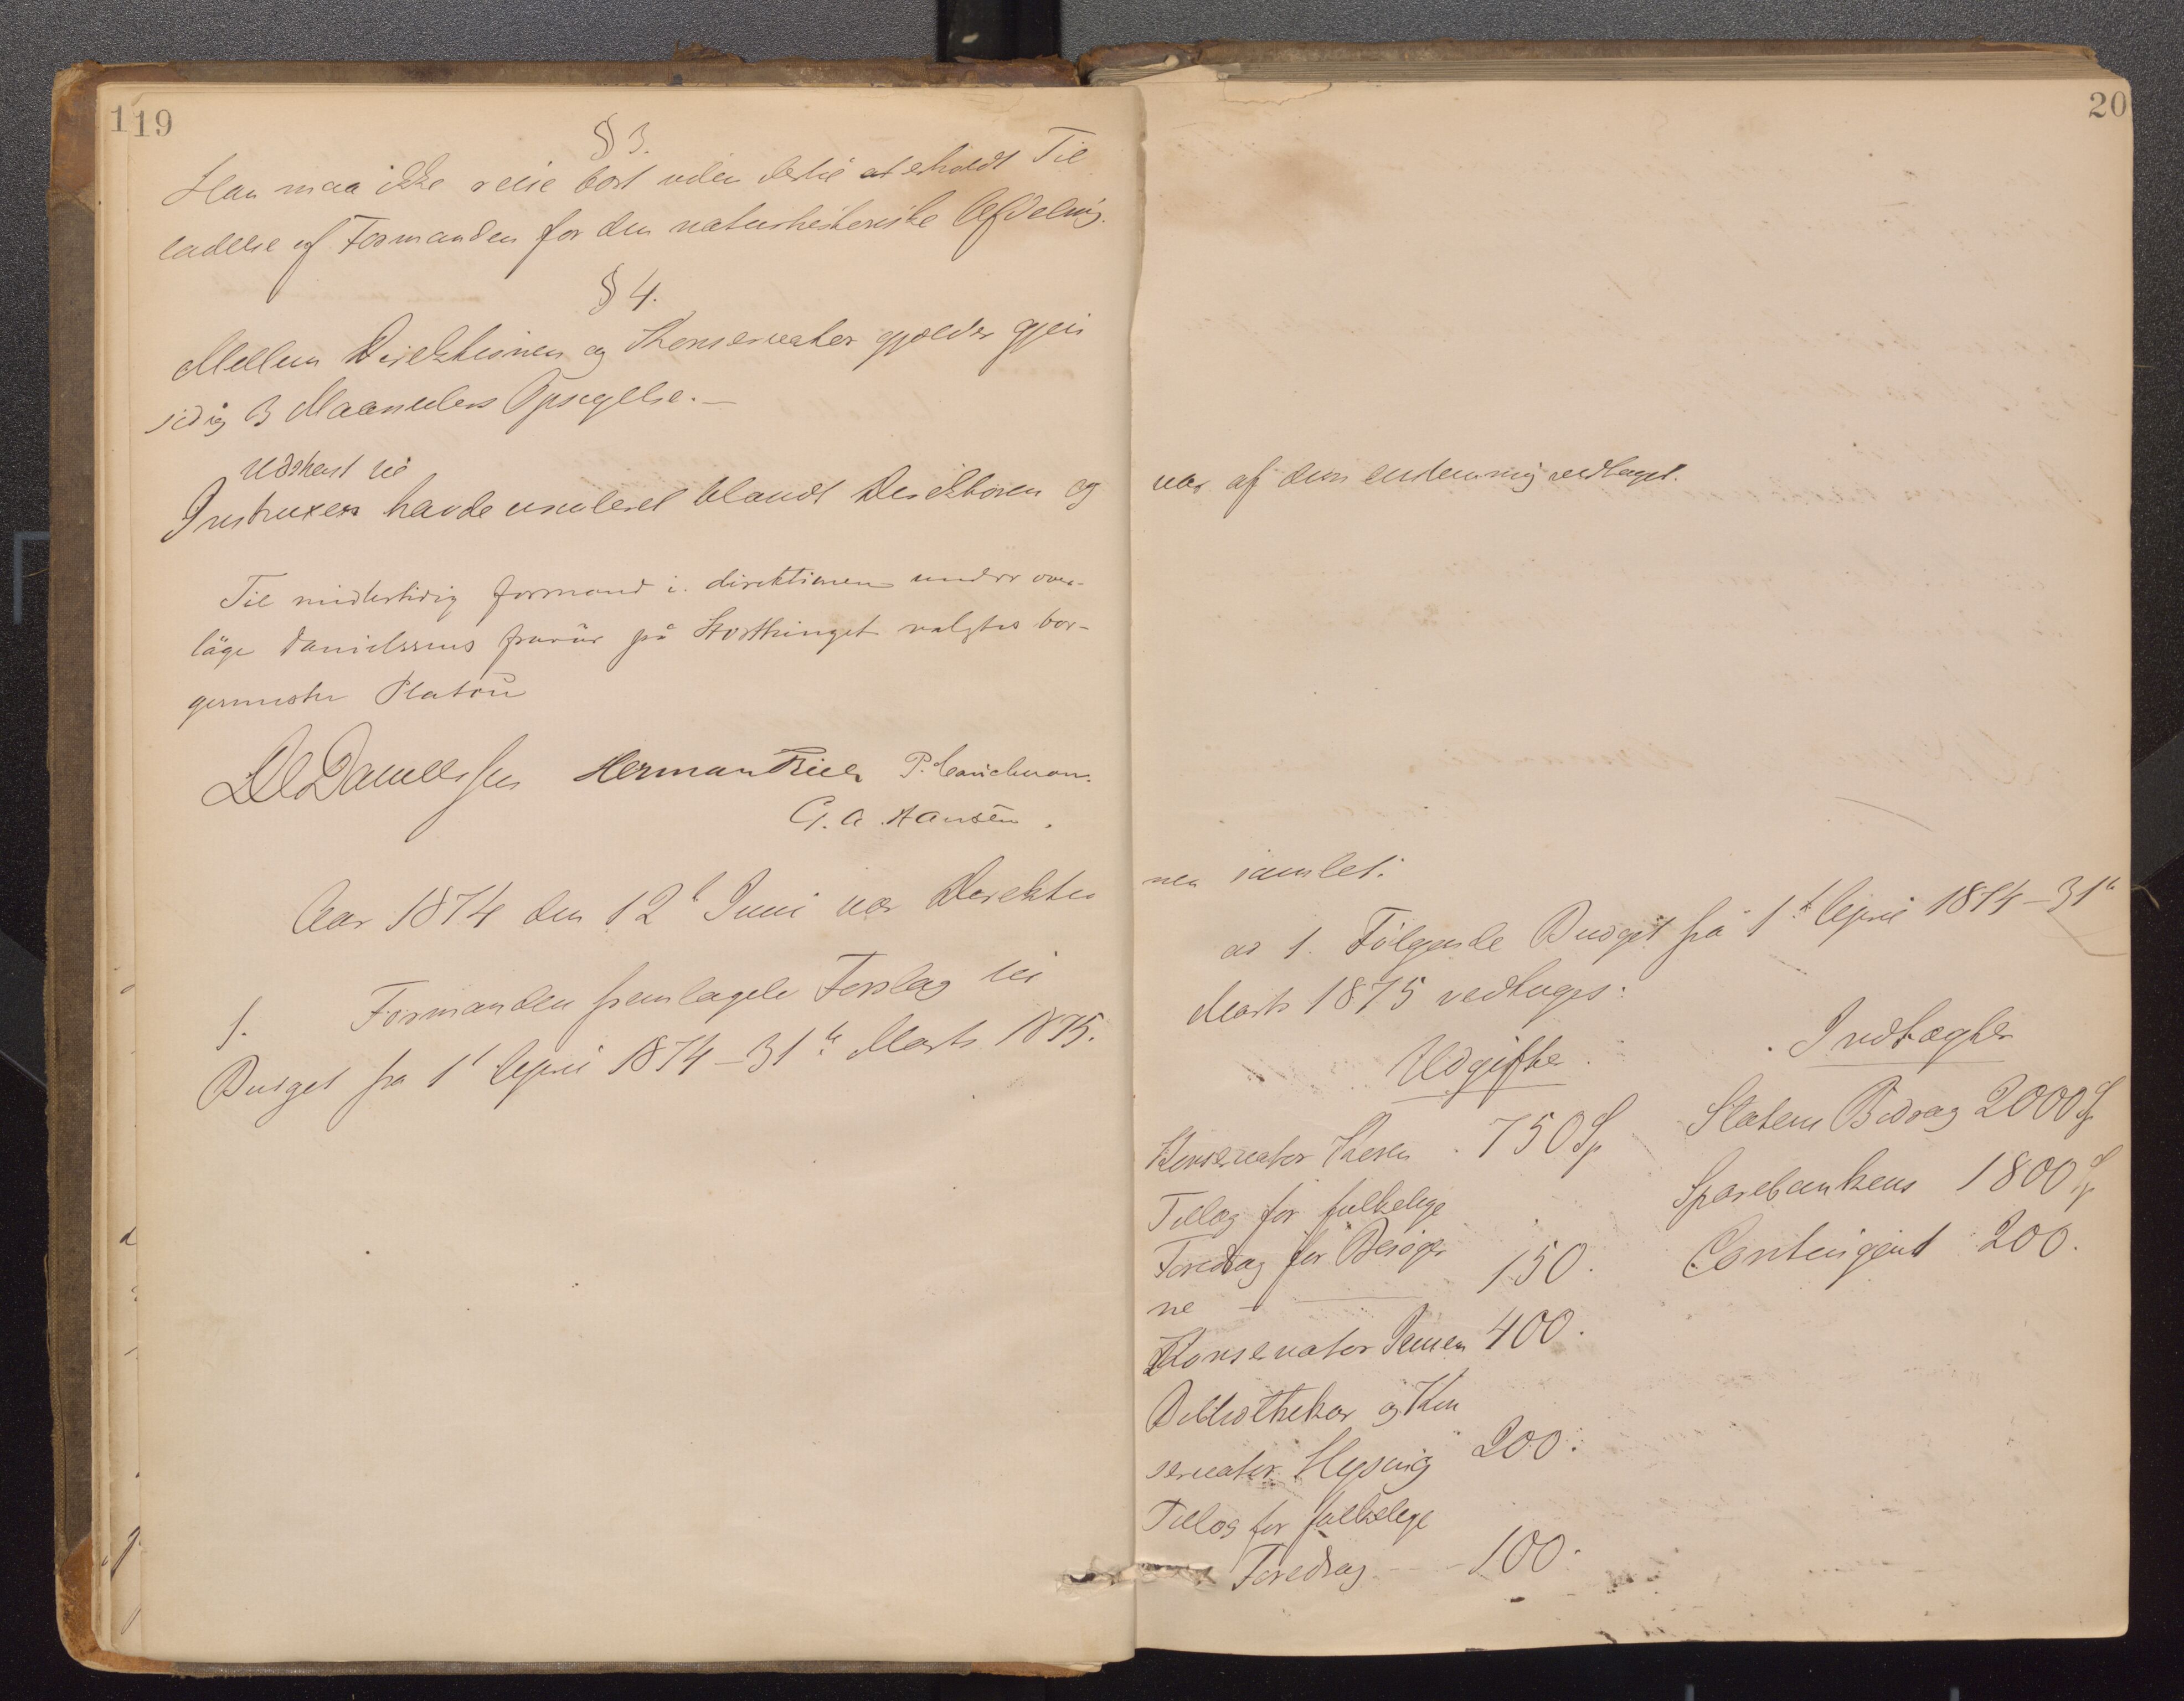 119
§ 3.
Han maa ikke reise bort uden dertil at erholdt Til
ladelse af Formanden for den naturhistoriske Afdeling.
§ 4.
Mellem Direktionen og Konservator gjælder gjen
sidig 3 Maaneders Opsigelse.—
Udkast til
Instruxen havde cirkuleret blandt Direktionen og
Til midlertidig formand i direktionen under over-
læge Danielssens fravær på Storthinget valgtes bor-
germester Platou
DC Danielssen Herman Friele P.
G. A. Hansen.
Aar 1874 den 12t Juni var Direktio
1. Formanden fremlagde Forslag til
Budget fra 1t April 1874–31te Marts 1875.
20
var af den enstemmig vedtaget.
nen samlet.
ad 1. Følgende Budget fra 1t April 1874–31te
Marts 1875 vedtoges:
Udgifter. Indtægter
Konservator Koren . 750 Sp Statens Bidrag 2000 Sp
Tillæg for folkelige Sparebankens 1800 Sp
Foredrag for Besøger
ne — 150. Contingent 200.
Konservator Jensen 400.
Bibliothekar og Kon
servator Hysing 200.
Tillæg for folkelige
Foredrag - - - 100.